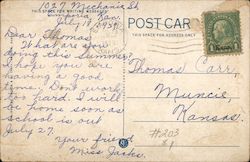 1027 Mechanic St.
Emporia, Kan.
July 17, 1934
POST CARD
THIS SPACE FOR WRITING MESSAGES
Dear Thomas,
What are you
doing this summer?
I hope you are
having a good
time. Don't work
too hard. I will
be home soon as
school is out
July 27.
Your friend
Miss Jacks.
Thomas Carr,
Muncie,
Kansas.
#203